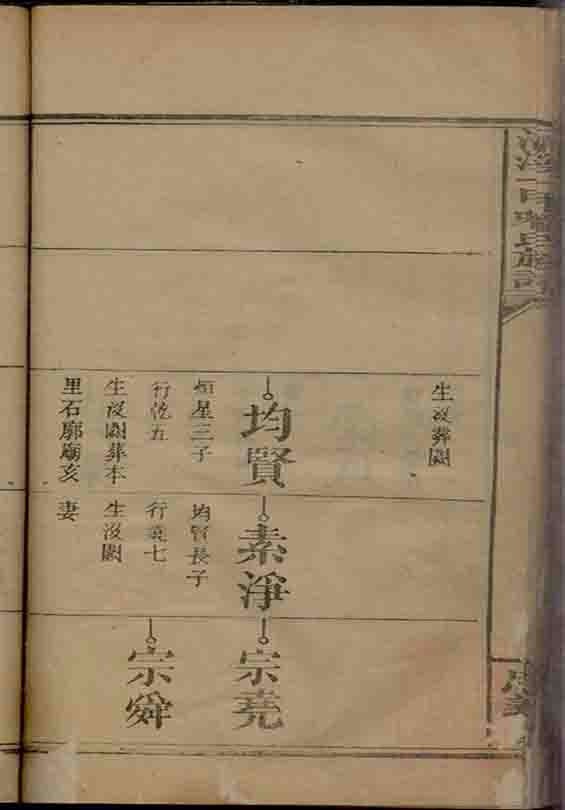 族
生沒葬闕
均賢
恒星三子
行乾五
生沒闕葬本
里石廓廟亥
素淨
均賢長子
行義七
生沒闕
妻
宗堯
宗舜